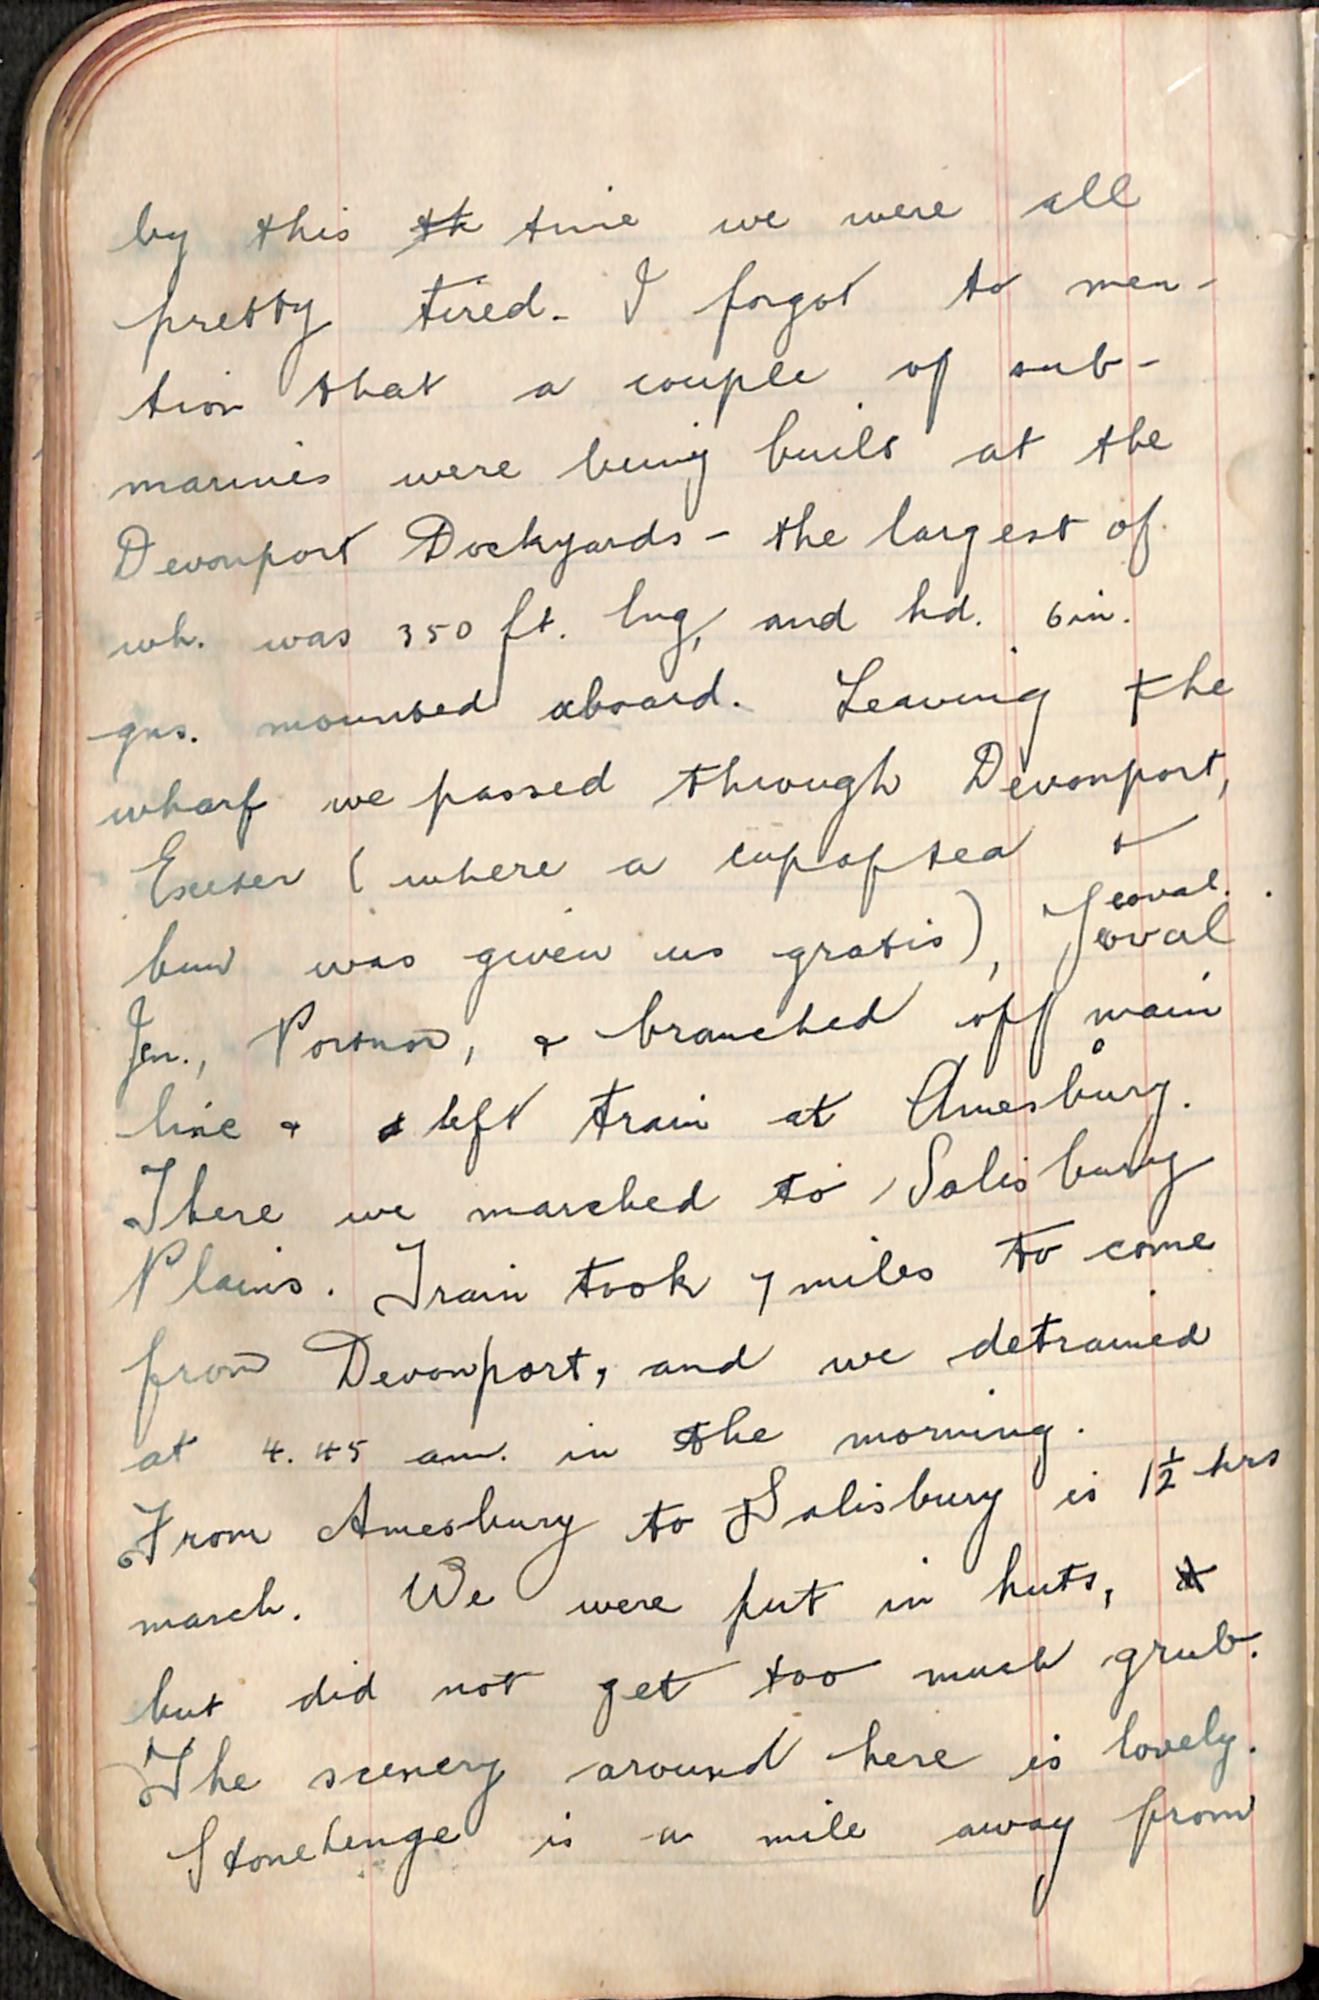 by this th time we were all
pretty tired. I forgot to men-
tion that a couple of sub-
marines were being built at the
Devonport Dockyards - the largest of
wh. was 350 ft. lng, and hd. 6in.
gns. mounted aboard. Leaving the
wharf we passed through Devonport,
Exeter (where a cup of tea &
bun was given us gratis), Yeoval.
Jn., Portnon, & branched off main
line & left train at Amesbury.
There we marched to Salisbury
Plains. Train took 7 miles to come
from Devonport, and we detrained
at 4.45 am. in the morning.
From Amesbury to Salisbury is 1½ hrs
march. We were put in huts,
but did not get too much grub.
The scenery around here is lovely.
Stonehenge is a mile away from